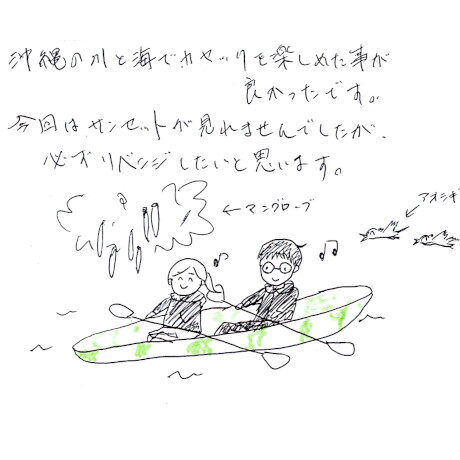 沖縄の川と海でカヤックを楽しめた事が
良かったです。
今回はサンセットが見れませんでしたが、
必ずリベンジしたいと思います。
←マングローブ
アオサギ